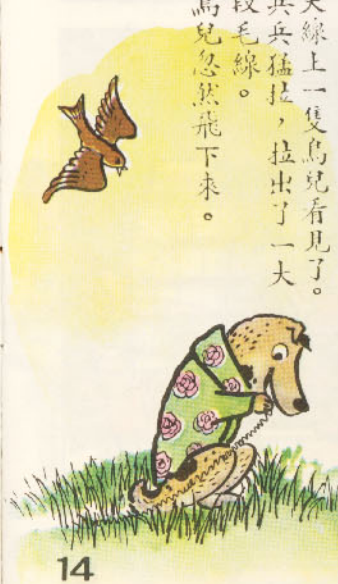 天線上一隻鳥兒看見了。
兵兵猛拉，拉出了一大
段毛線。
鳥兒忽然飛下來。
14